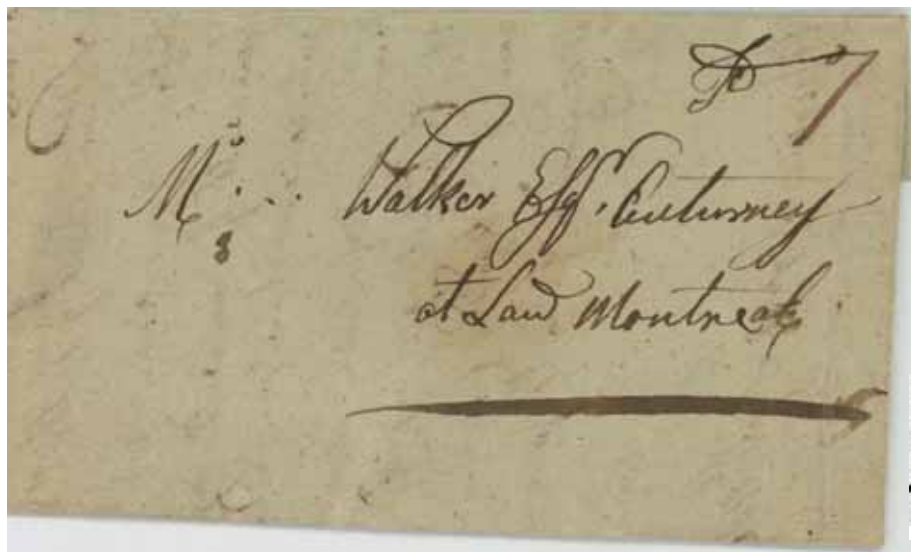 Pd 7
Mr. .. Walker Esqr. Auturney
at Law Montreal
8